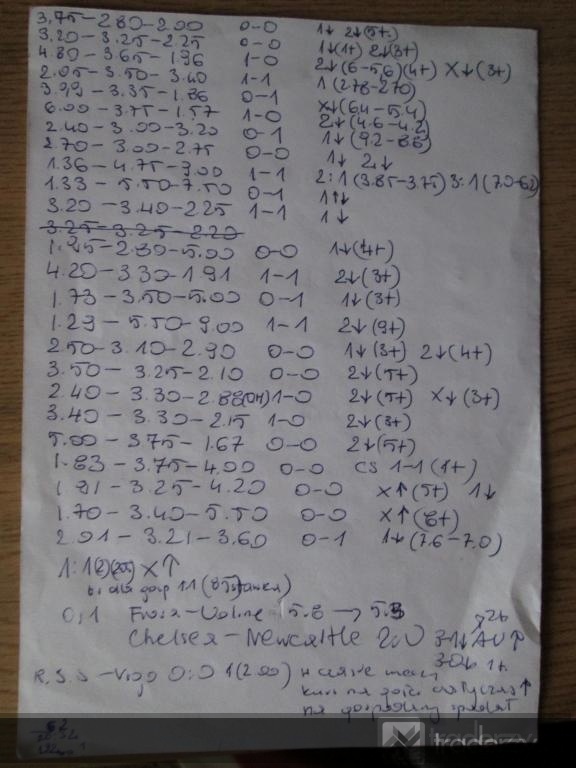 3.75-2.80-2.00 0-0 1↓ 2↓(5+)
3.20-3.25-2.25 0-0 1↓(1+) 2↓(3+)
4.80-3.65-1.96 1-0 2↓(6-5,6)(4+) X↓(3+)
2.05-3.50-3.40 1-1 1(2.78-2.70)
3.99-3.35-1.86 0-1 X↓(6.4-5.4)
6.00-3.75-1.57 1-0 2↓(4.6-4.2)
2.40-3.00-3.20 0-1 1↓(9.2-8.6)
2.70-3.00-2.75 0-0 1↓ 2↓
1.36-4.75-9.00 1-1 2:1(3.85-3.75) 3:1(7.0-6.2)
1.33-5.50-7.50 0-1 1↑↓
3.20-3.40-2.25 1-1 1↓
3.25-3.25-2.20
1.95-2.80-5.00 0-0 1↓(4+)
4.20-3.30-1.91 1-1 2↓(3+)
1.73-3.50-5.00 0-1 1↓(3+)
1.29-5.50-9.00 1-1 2↓(9+)
2.50-3.10-2.90 0-0 1↓(3+) 2↓(4+)
3.50-3.25-2.10 0-0 2↓(5+)
2.40-3.30-2.88(OH) 1-0 2↓(5+) X↓(3+)
3.40-3.30-2.15 1-0 2↓(3+)
5.00-3.75-1.67 0-0 2↓(5+)
1.83-3.75-4.00 0-0 CS 1-1(1+)
1.91-3.25-4.20 0-0 X↑(5+) 1↓
1.70-3.40-5.50 0-0 X↑(8+)
2.01-3.21-3.60 0-1 1↓(7.6-7.0)
1:1 X↑
dla gosp 1.1
0:1 5.8→5.3
Chelsea-Newcastle 2:0 3-1↓ AU↑
3-0↓ 1+
R.S.S-Vigo 0:0 1(2.00) w czasie meczu
kurs na gości ↑
na gospodarzy spadał